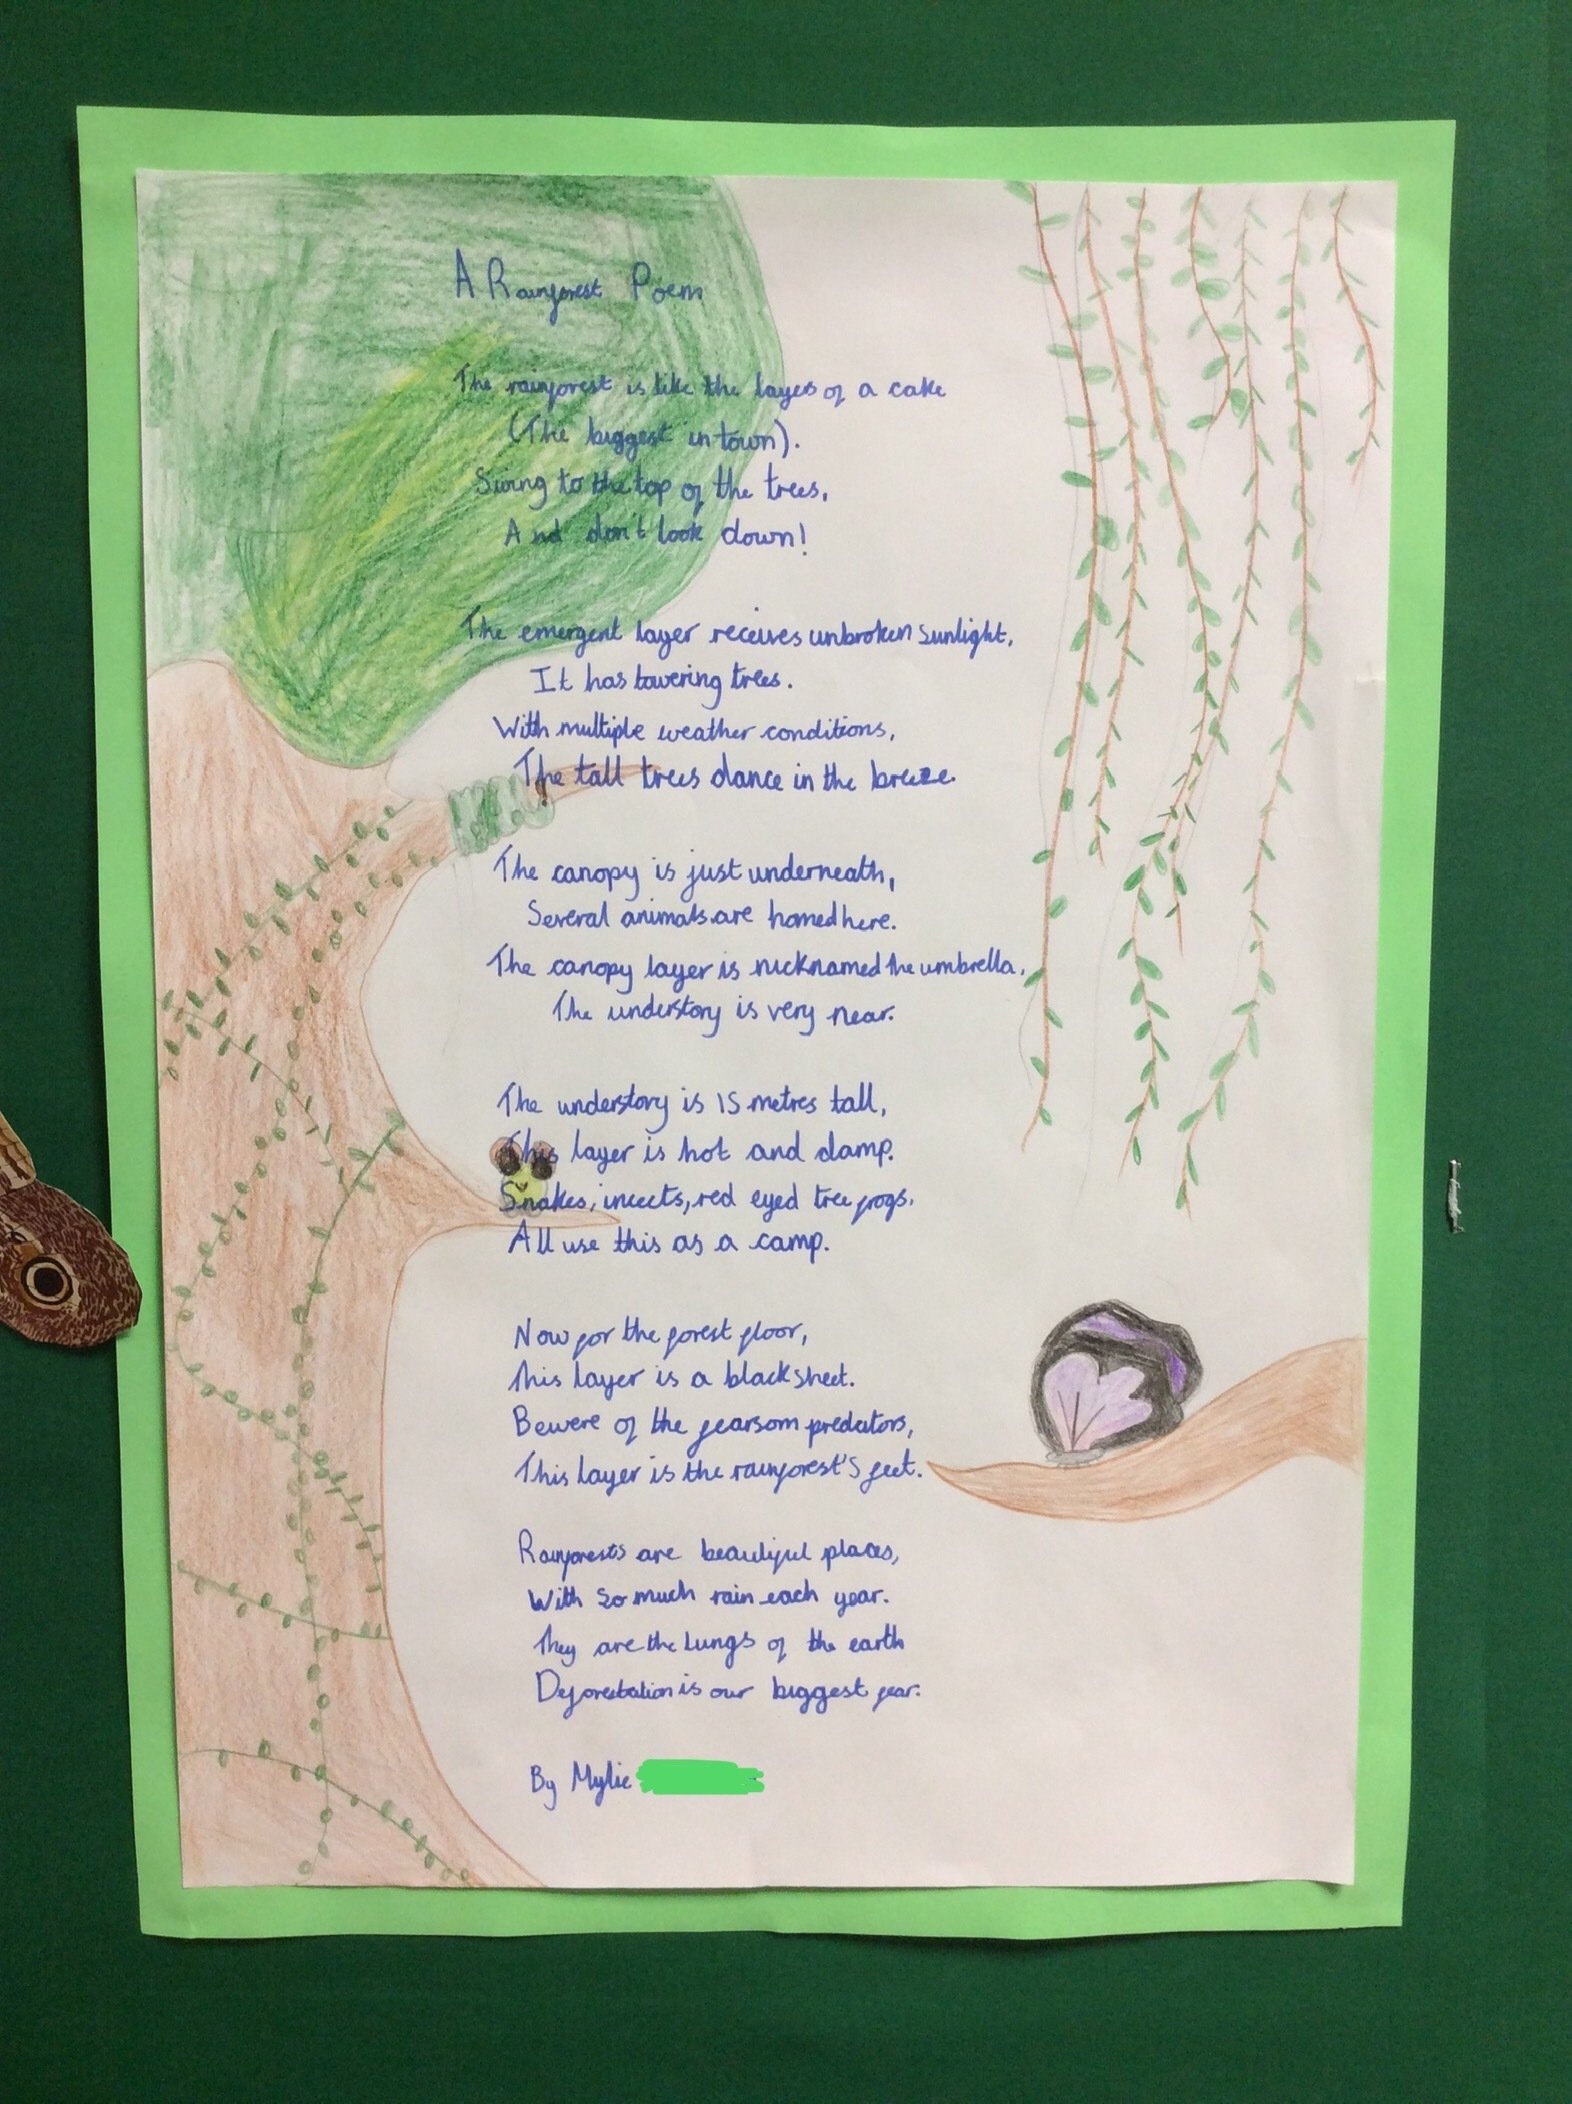 A Rainforest Poem
The rainforest is like the layers of a cake
(The biggest in town).
Swing to the top of the trees,
And don't look down!
The emergent layer receives unbroken sunlight,
It has towering trees.
With multiple weather conditions,
The tall trees dance in the breeze
The canopy is just underneath,
Several animals are homed here.
The canopy layer is nicknamed the umbrella,
The understory is very near.
The understory is 15 metres tall,
This layer is hot and damp.
Snakes, insects, red eyed tree frogs,
All use this as a camp.
Now for the forest floor,
This layer is a black sheet.
Bewere of the fearsom predators,
This layer is the rainforest's feet.
Rainforests are beautiful places,
With so much rain each year.
They are the lungs of the earth
Deforestation is our biggest fear.
By Mylie